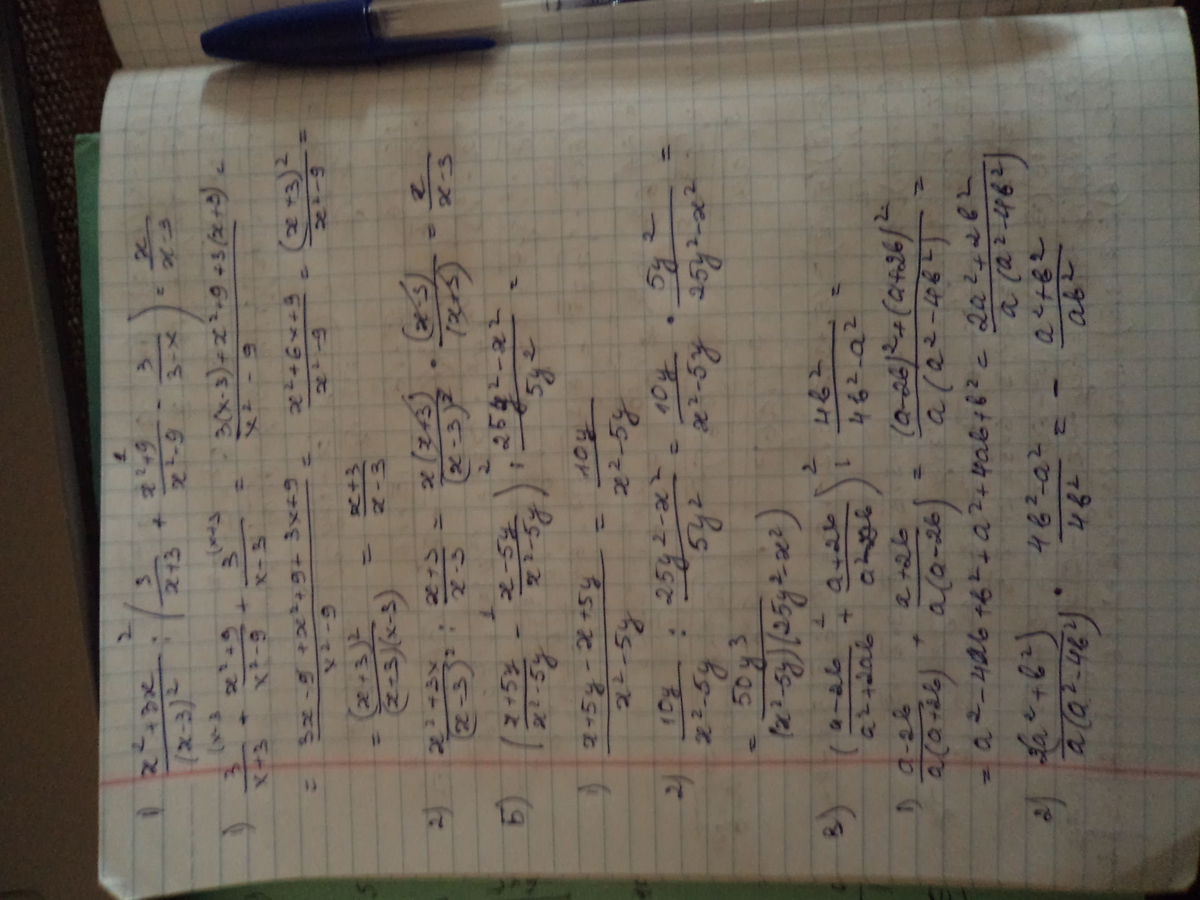 1) (x²+3x)/(x-3)² : (3/(x+3) + (x²+9)/(x²-9) - 3/(3-x)) = x/(x-3)
1) 3/(x+3) (x-3 + (x²+9)/(x²-9) + 3/(x-3) (x+3 = (3(x-3)+x²+9+3(x+3))/(x²-9) =
= (3x-9+x²+9+3x+9)/(x²-9) = (x²+6x+9)/(x²-9) = (x+3)²/(x²-9) =
= (x+3)²/((x-3)(x-3)) = (x+3)/(x-3)
2) (x²+3x)/(x-3)² : (x+3)/(x-3) = x(x+3)/(x-3)² · (x-3)/(x+3) = x/(x-3)
Б) ((x+5y)/(x²-5y) - (x-5y)/(x²-5y)) : (25y²-x²)/5y² =
1) (x+5y-x+5y)/(x²-5y) = 10y/(x²-5y)
2) 10y/(x²-5y) : (25y²-x²)/5y² = 10y/(x²-5y) · 5y²/(25y²-x²) =
= 50y³/((x²-5y)(25y²-x²))
в) ((a-2b)/(a²+2ab) + (a+2b)/(a²-2ab)) : 4b²/(4b²-a²) =
1) (a-2b)/(a(a+2b)) + (a+2b)/(a(a-2b)) = ((a-2b)²+(a+2b)²)/(a(a²-4b²)) =
= a²-4ab+b²+a²+4ab+b² = (2a²+2b²)/(a(a²-4b²))
2) 2(a²+b²)/(a(a²-4b²)) · (4b²-a²)/4b² = - (a²+b²)/ab²